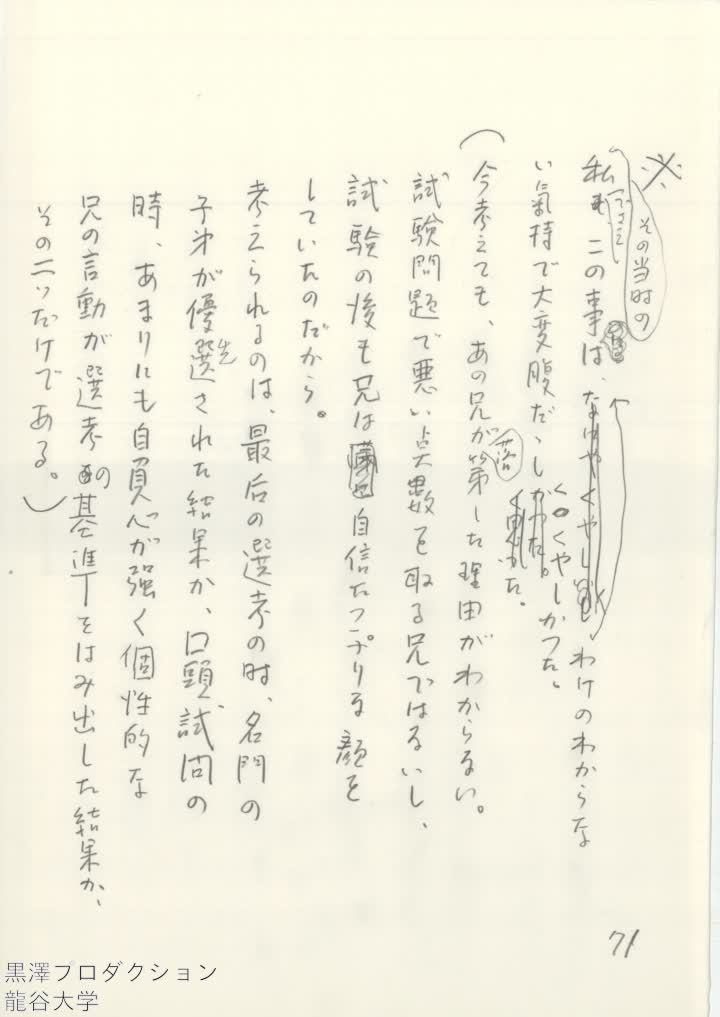 ※
その当時の
私
この事は、なにやらくやしい、わけのわからな
い氣持で大変腹だゝしく、くやしかつた。
(今考えても、あの兄が落第した理由がわからない。
試験問題で悪い点数を取る兄ではないし、
試験の後も兄は自信たつぷりな顔を
していたのだから。
考えられるのは、最后の選考の時、名門の
子弟が優先された結果か、口頭試問の
時、あまりにも自負心が強く個性的な
兄の言動が選考の基準をはみ出した結果か、
その二つだけである。)
71
黒澤プロダクション
龍谷大学